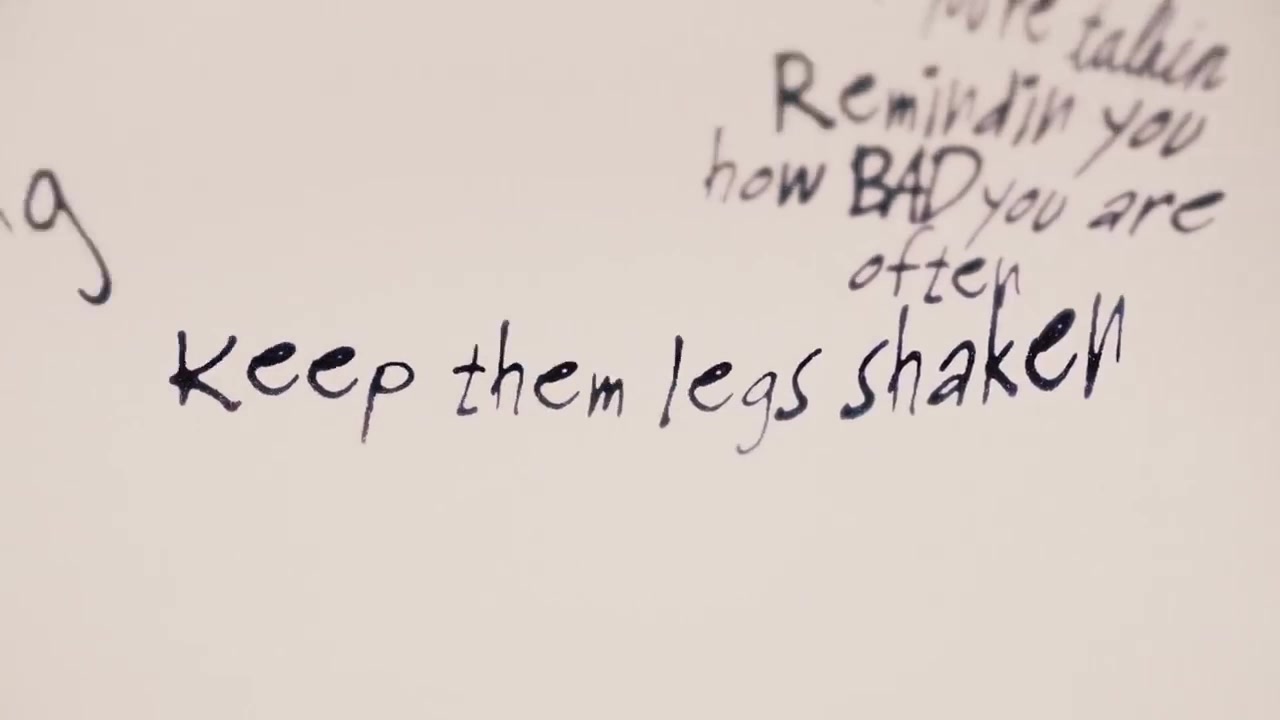 More talkin
Remindin you
how BAD you are
often
g
Keep them legs shaken